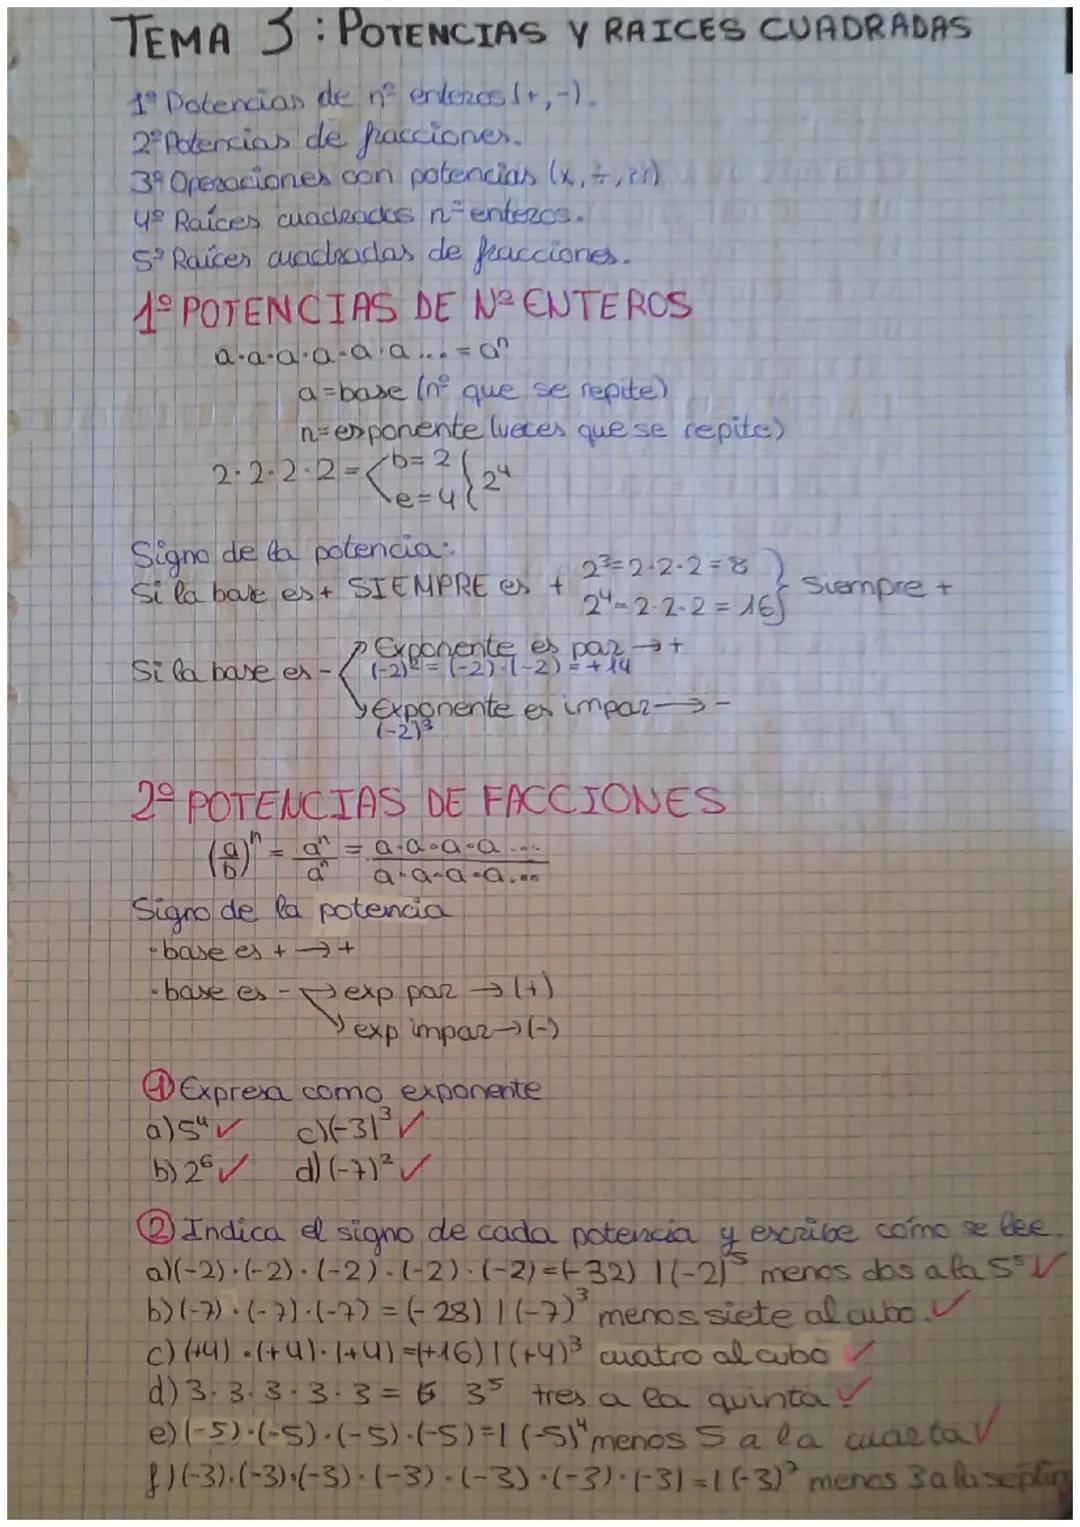 TEMA 3: POTENCIAS Y RAICES CUADRADAS
1º Potencias de nº enteros (+,-).
2º Potencias de fracciones.
3º Operaciones con potencias (x, ÷,
4º Raíces cuadradas nº enteros.
5º Raíces cuadradas de fracciones.
1º POTENCIAS DE Nº ENTEROS
a·a·a·a·a·a... = aⁿ
a=base (nº que se repite)
n=exponente (veces que se repite)
2·2·2·2 = b=2 e=4 } 2⁴
Signo de la potencia:
Si la base es + SIEMPRE es + 2³=2·2·2=8 2⁴=2·2·2=16 } Siempre +
Si la base es - Exponente es par → +
(-2)² = (-2)·(-2) = +14
Exponente es impar → -
(-2)³
2º POTENCIAS DE FACCIONES
(a/b)ⁿ = aⁿ/aⁿ = a·a·a·a.../a·a·a·a...
Signo de la potencia
·base es + → +
·base es - → exp par → (+)
exp impar → (-)
① Expresa como exponente
a) 5⁴ ✓ c) (-3)³ ✓
b) 2⁶ ✓ d) (-7)² ✓
② Indica el signo de cada potencia y escribe cómo se lee.
a) (-2)·(-2)·(-2)·(-2)·(-2) = (-32) | (-2)⁵ menos dos a la 5ª ✓
b) (-7)·(-7)·(-7) = (-28) | (-7)³ menos siete al cubo. ✓
c) (+4)·(+4)·(+4) = (+16) | (+4)³ cuatro al cubo ✓
d) 3·3·3·3·3 = 3⁵ tres a la quinta ✓
e) (-5)·(-5)·(-5)·(-5) = | (-5)⁴ menos 5 a la cuarta ✓
f) (-3)·(-3)·(-3)·(-3)·(-3)·(-3)·(-3) = | (-3)⁷ menos 3 a la séptim